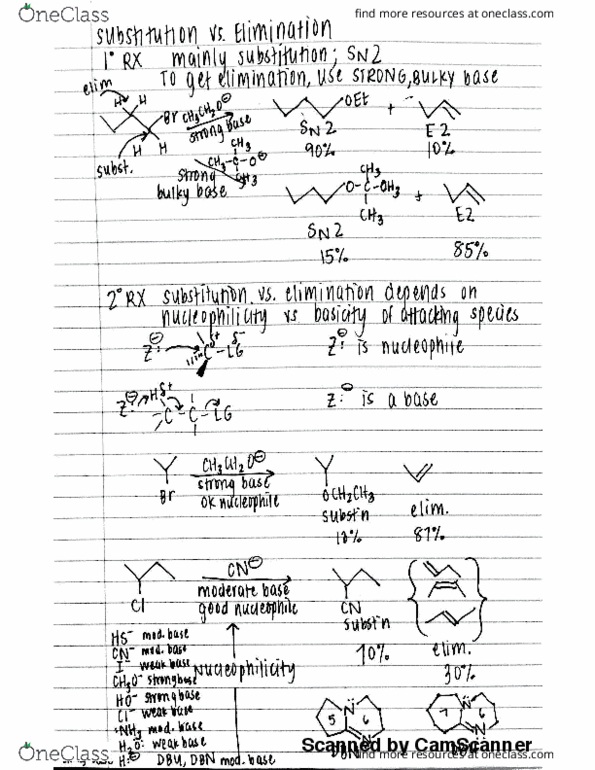 OneClass
find more resources at oneclass.com
substitution vs. Elimination
1° RX mainly substitution; SN2
TO get elimination, USE STRONG, BULKY base
elim
H H
Br CH3CH2O⊖
strong base
H H
subst.
OEt +
SN2 E2
90% 10%
CH3
CH3-C-O⊖
CH3
strong
bulky base
CH3
O-C-CH3 +
CH3
SN2 E2
15% 85%
2° RX substitution vs. elimination depends on
nucleophilicity vs basicity of attacking species
Z:⊖ C δ+ δ- LG Z:⊖ is nucleophile
Z:⊖ H δ+ C-C-LG Z:⊖ is a base
Br
CH3CH2O⊖
strong base
OK nucleophile
OCH2CH3
subst'n elim.
87%
Cl
CN⊖
moderate base
good nucleophile
CN
subst'n elim.
70% 30%
HS- mod. base
CN- mod. base
I- weak base
CH3O- strong base
HO- strong base
Cl- weak base
:NH3 mod. base
H2O: weak base
H:⊖ DBU, DBN mod. base
Nucleophilicity
5 N 6 N
7 N 6
Scanned by CamScanner
OneClass
find more resources at oneclass.com